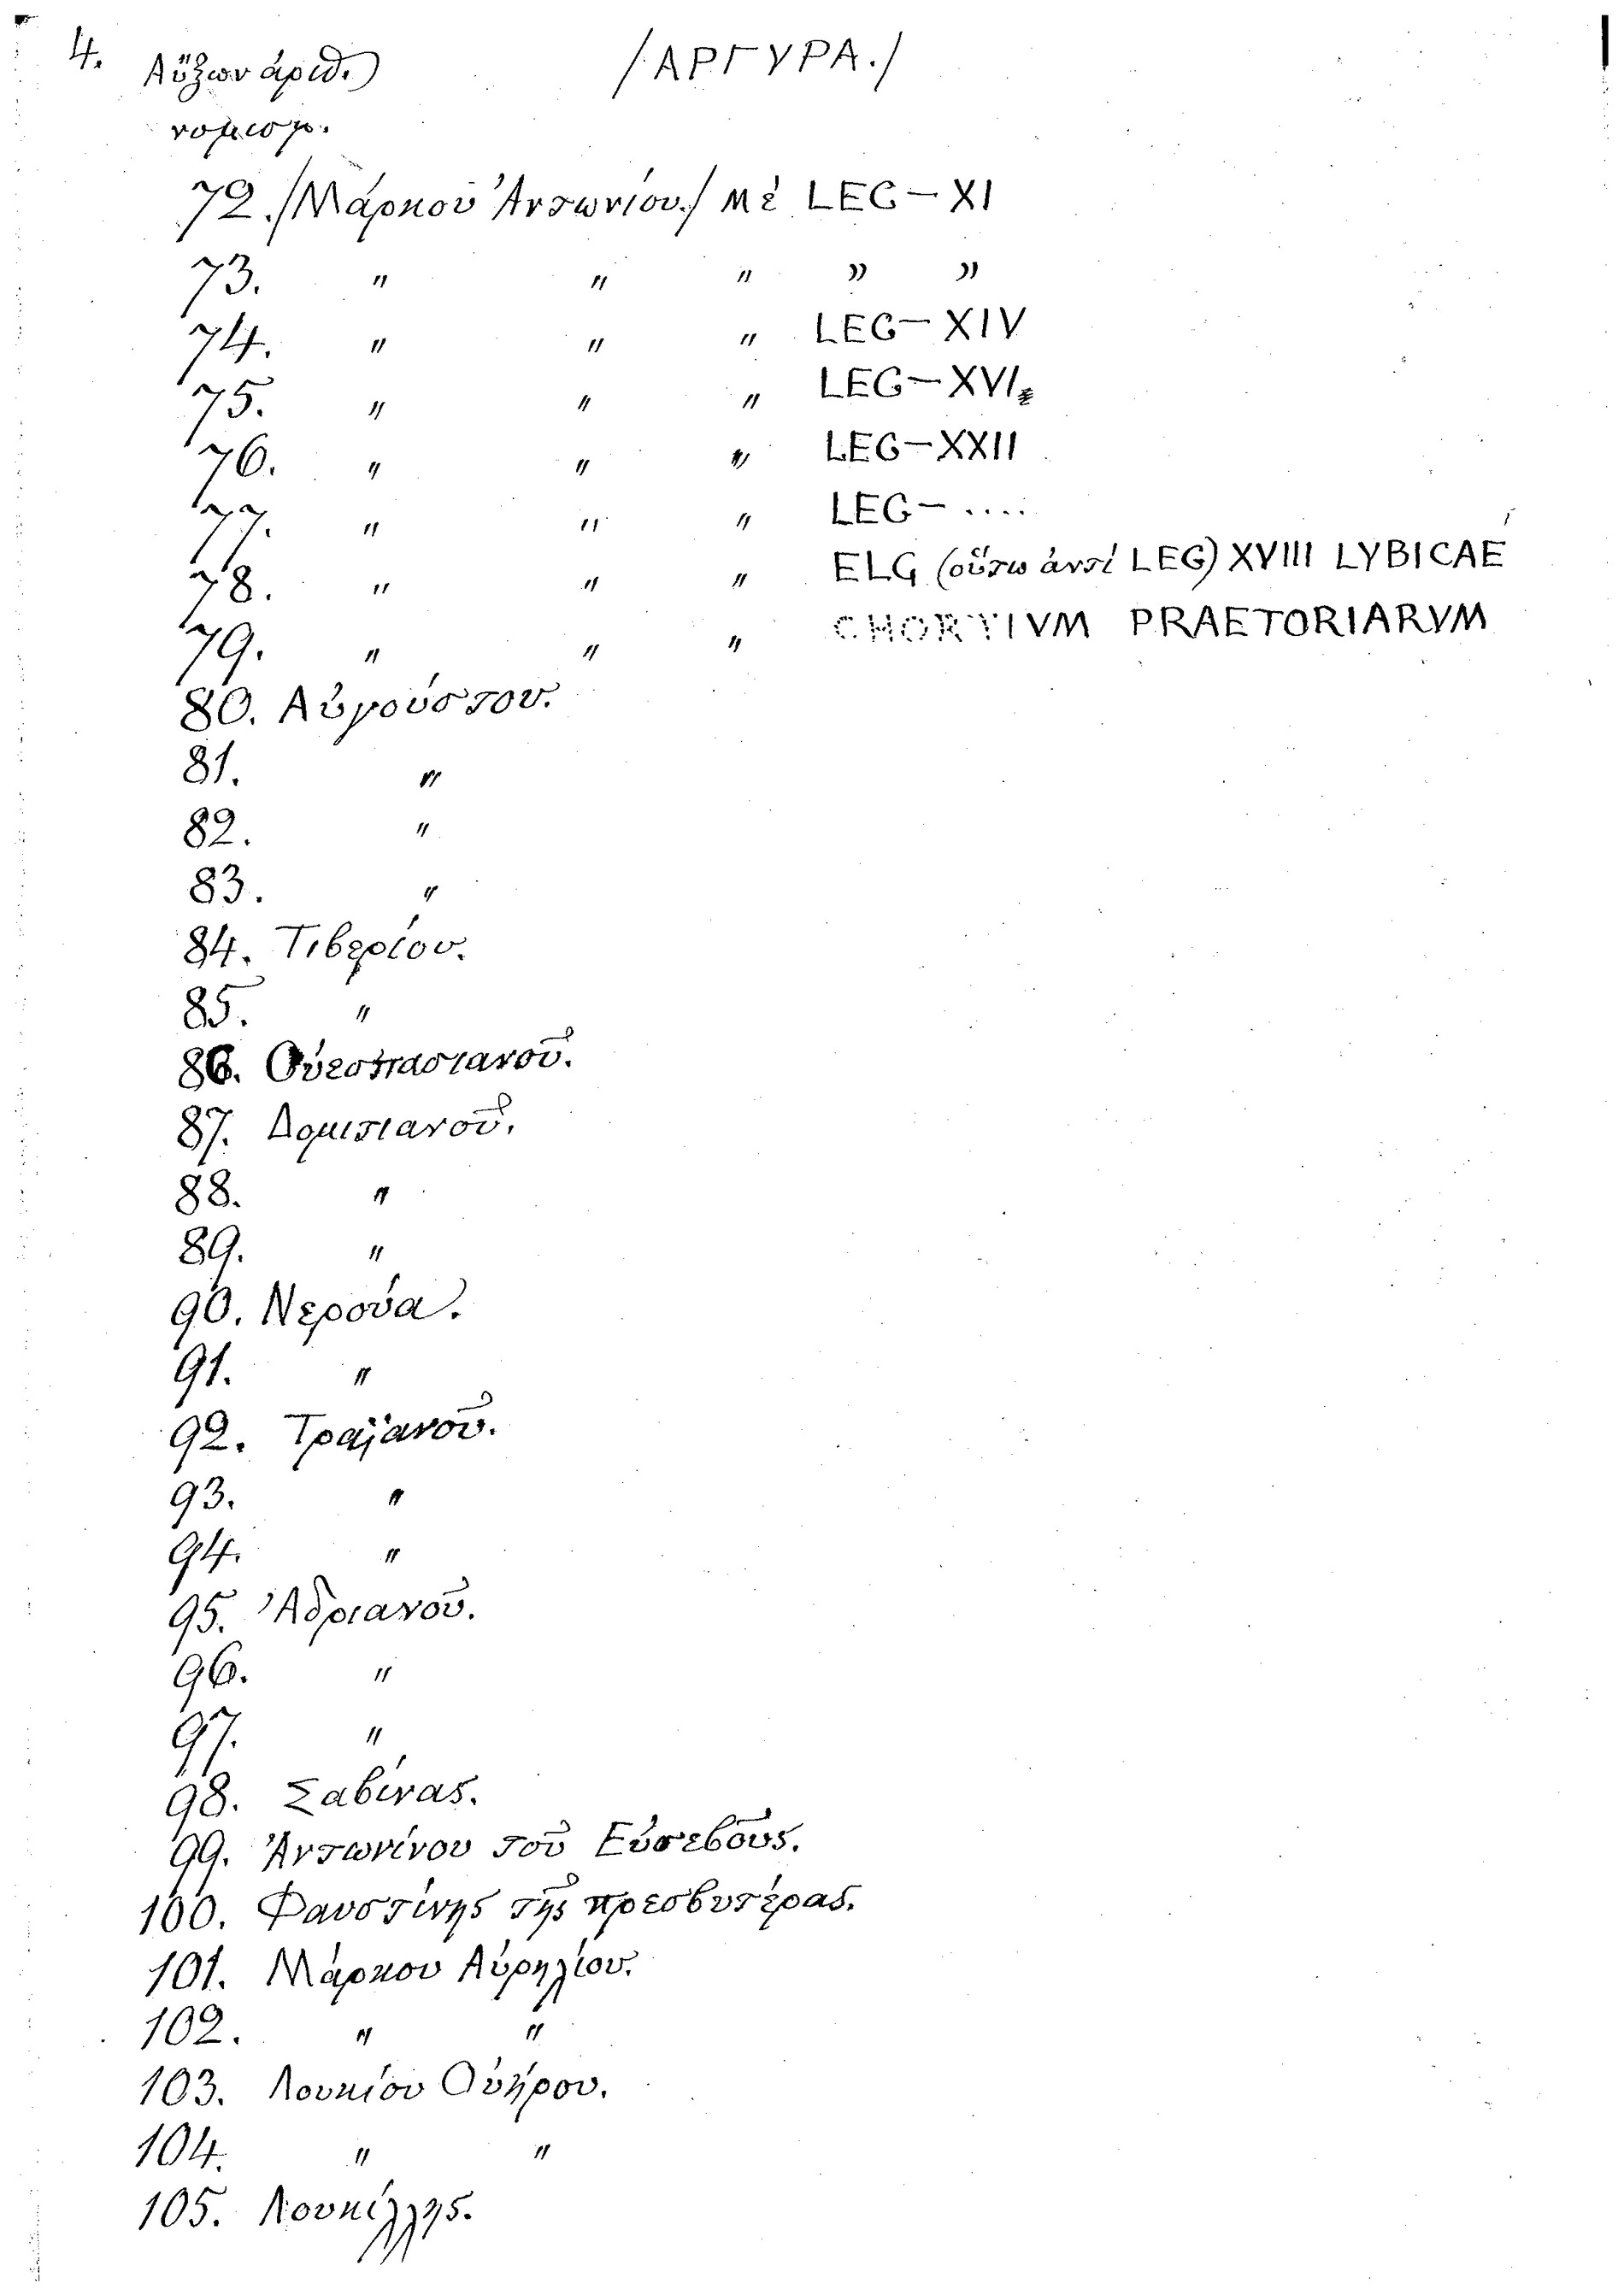 4. Αὔξων ἀριθ. /ΑΡΓΥΡΑ./
νομισμ.
72. /Μάρκου Ἀντωνίου./ μὲ LEG – XI
73. " " " » »
74. " " " LEG – XIV
75. " " " LEG – XVI
76. " " " LEG – XXII
77. " " " LEG – ....
78. " " " ELG (οὕτω ἀντί LEG) XVIII LYBICAE
79. " " " CHORTIVM PRAETORIARVM
80. Αὐγούστου.
81. "
82. "
83. "
84. Τιβερίου.
85. "
86. Οὐεσπασιανοῦ.
87. Δομιτιανοῦ.
88. "
89. "
90. Νερούα.
91. "
92. Τραϊανοῦ.
93. "
94. "
95. Ἀδριανοῦ.
96. "
97. "
98. Σαβίνας.
99. Ἀντωνίνου τοῦ Εὐσεβοῦς.
100. Φαυστίνης τῆς πρεσβυτέρας.
101. Μάρκου Αὐρηλίου.
102. " "
103. Λουκίου Οὐήρου.
104. " "
105. Λουκίλλης.